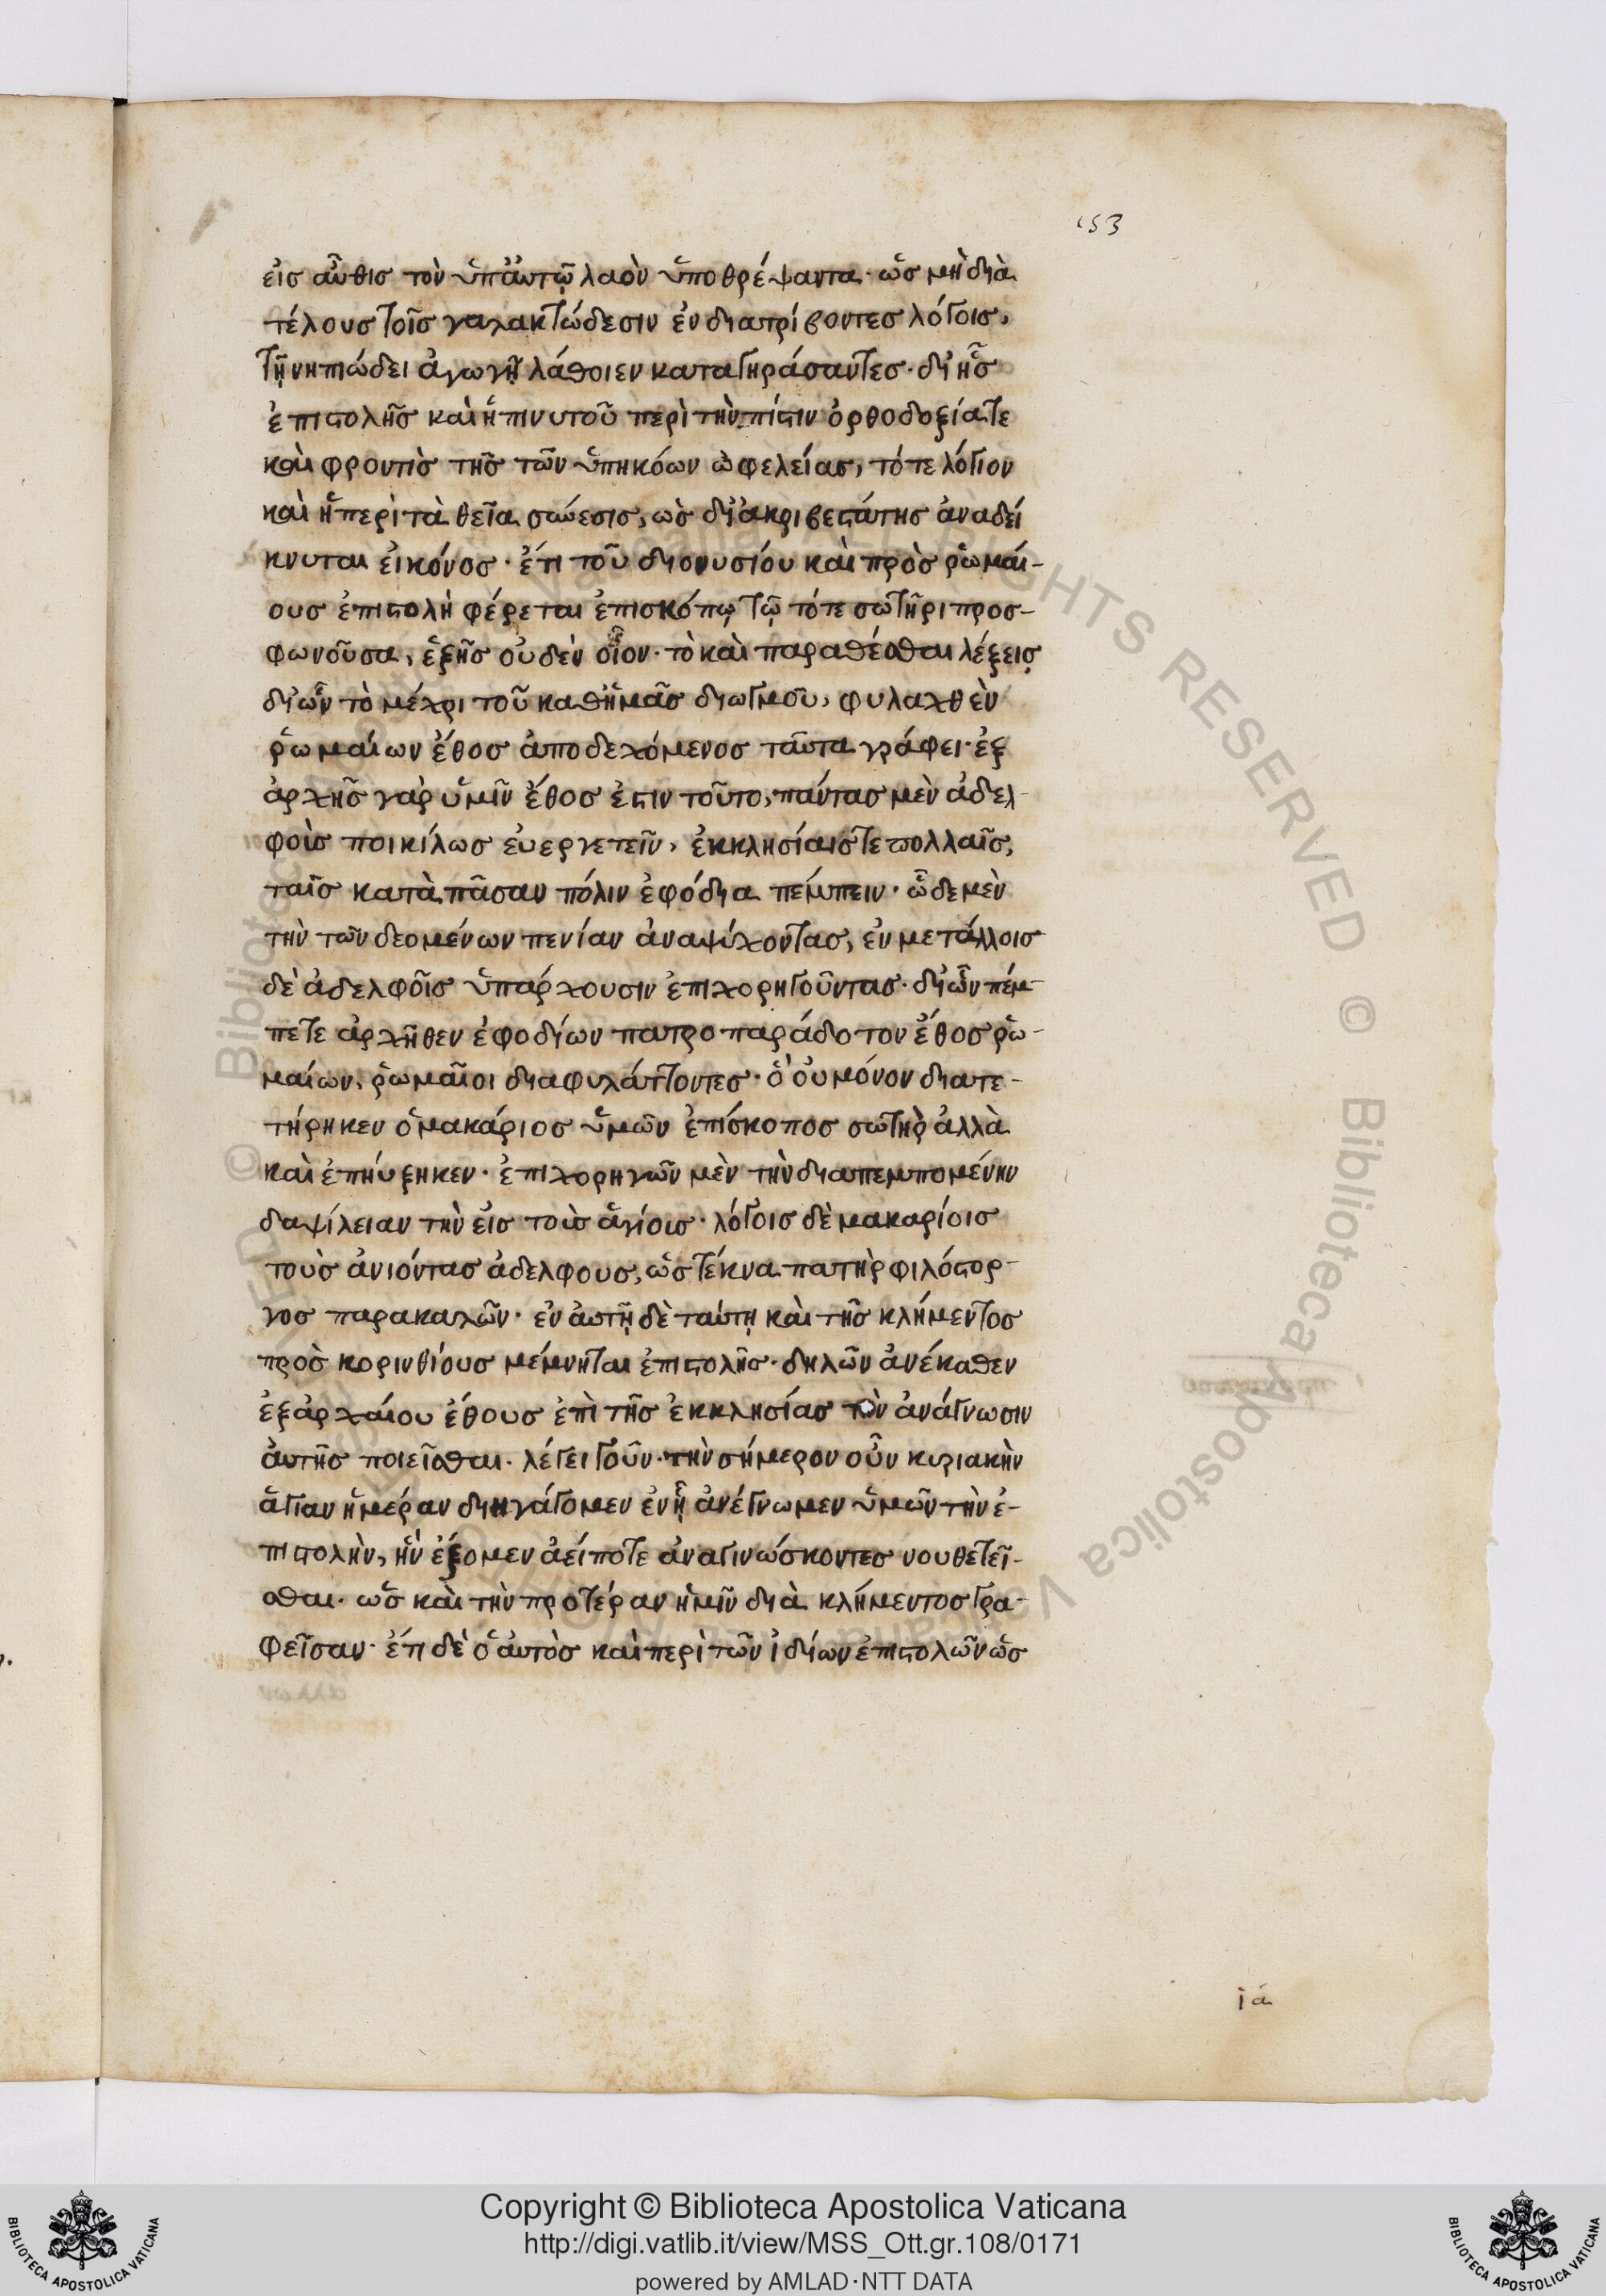 153
εἰς αὖθις τὸν ὑπ' αὐτῷ λαὸν ὑποθρέψαντα· ὡς μὴ διὰ
τέλους τοῖς γαλακτώδεσιν ἐνδιατρίβοντες λόγοις,
τῇ νηπιώδει ἀγωγῇ λάθοιεν καταγηράσαντες· δι' ἧς
ἐπιστολῆς καὶ ἡ πινυτοῦ περὶ τὴν πίστιν ὀρθοδοξία τε
καὶ φροντὶς τῆς τῶν ὑπηκόων ὠφελείας, τό τε λόγιον
καὶ ἡ περὶ τὰ θεῖα σύνεσις, ὡς δι' ἀκριβεστάτης ἀναδεί
κνυται εἰκόνος· ἔτι τοῦ διονυσίου καὶ πρὸς ῥωμαί-
ους ἐπιστολὴ φέρεται ἐπισκόπῳ τῷ τότε σωτῆρι προσ-
φωνοῦσα, ἑξῆς οὐδὲν οἷον· τὸ καὶ παραθέσθαι λέξεις
δι' ὧν τὸ μέχρι τοῦ καθ' ἡμᾶς διωγμοῦ, φυλαχθὲν
ῥωμαίων ἔθος ἀποδεχόμενος ταῦτα γράφει· ἐξ
ἀρχῆς γὰρ ὑμῖν ἔθος ἐστιν τοῦτο, πάντας μὲν ἀδελ-
φοὺς ποικίλως εὐεργετεῖν, ἐκκλησίαις τε πολλαῖς,
ταῖς κατὰ πᾶσαν πόλιν ἐφόδια πέμπειν· ὧδε μὲν
τὴν τῶν δεομένων πενίαν ἀναψύχοντας, ἐν μετάλλοις
δὲ ἀδελφοῖς ὑπάρχουσιν ἐπιχορηγοῦντας· δι' ὧν πέμ-
πετε ἀρχῆθεν ἐφοδίων πατροπαράδοτον ἔθος ῥω-
μαίων, ῥωμαῖοι διαφυλάττοντες· ὃ οὐ μόνον διατε-
τήρηκεν ὁ μακάριος ὑμῶν ἐπίσκοπος σωτὴρ ἀλλὰ
καὶ ἐπηύξηκεν· ἐπιχορηγῶν μὲν τὴν διαπεμπομένην
δαψίλειαν τὴν εἰς τοὺς ἁγίους· λόγοις δὲ μακαρίοις
τοὺς ἀνιόντας ἀδελφους, ὡς τέκνα πατὴρ φιλόστορ-
γος παρακαλῶν· ἐν αὐτῇ δὲ ταύτῃ καὶ τῆς κλήμεντος
πρὸς κορινθίους μέμνηται ἐπιστολῆς· δηλῶν ἀνέκαθεν
ἐξ ἀρχαίου ἔθους ἐπὶ τῆς ἐκκλησίας τὴν ἀνάγνωσιν
αὐτῆς ποιεῖσθαι· λέγει γοῦν· τὴν σήμερον οὖν κυριακὴν
ἁγίαν ἡμέραν διηγάγομεν ἐν ᾗ ἀνέγνωμεν ὑμῶν τὴν ἐ-
πιστολὴν, ἣν ἕξομεν ἀεί ποτε ἀναγινώσκοντες νουθετεῖ-
σθαι· ὡς καὶ τὴν προτέραν ἡμῖν διὰ κλήμεντος γρα-
φεῖσαν· ἔτι δὲ ὁ αὐτὸς καὶ περὶ τῶν ἰδίων ἐπιστολῶν ὡς
ιά
Copyright © Biblioteca Apostolica Vaticana
http://digi.vatlib.it/view/MSS_Ott.gr.108/0171
powered by AMLAD·NTT DATA
BIBLIOTECA APOSTOLICA VATICANA
BIBLIOTECA APOSTOLICA VATICANA